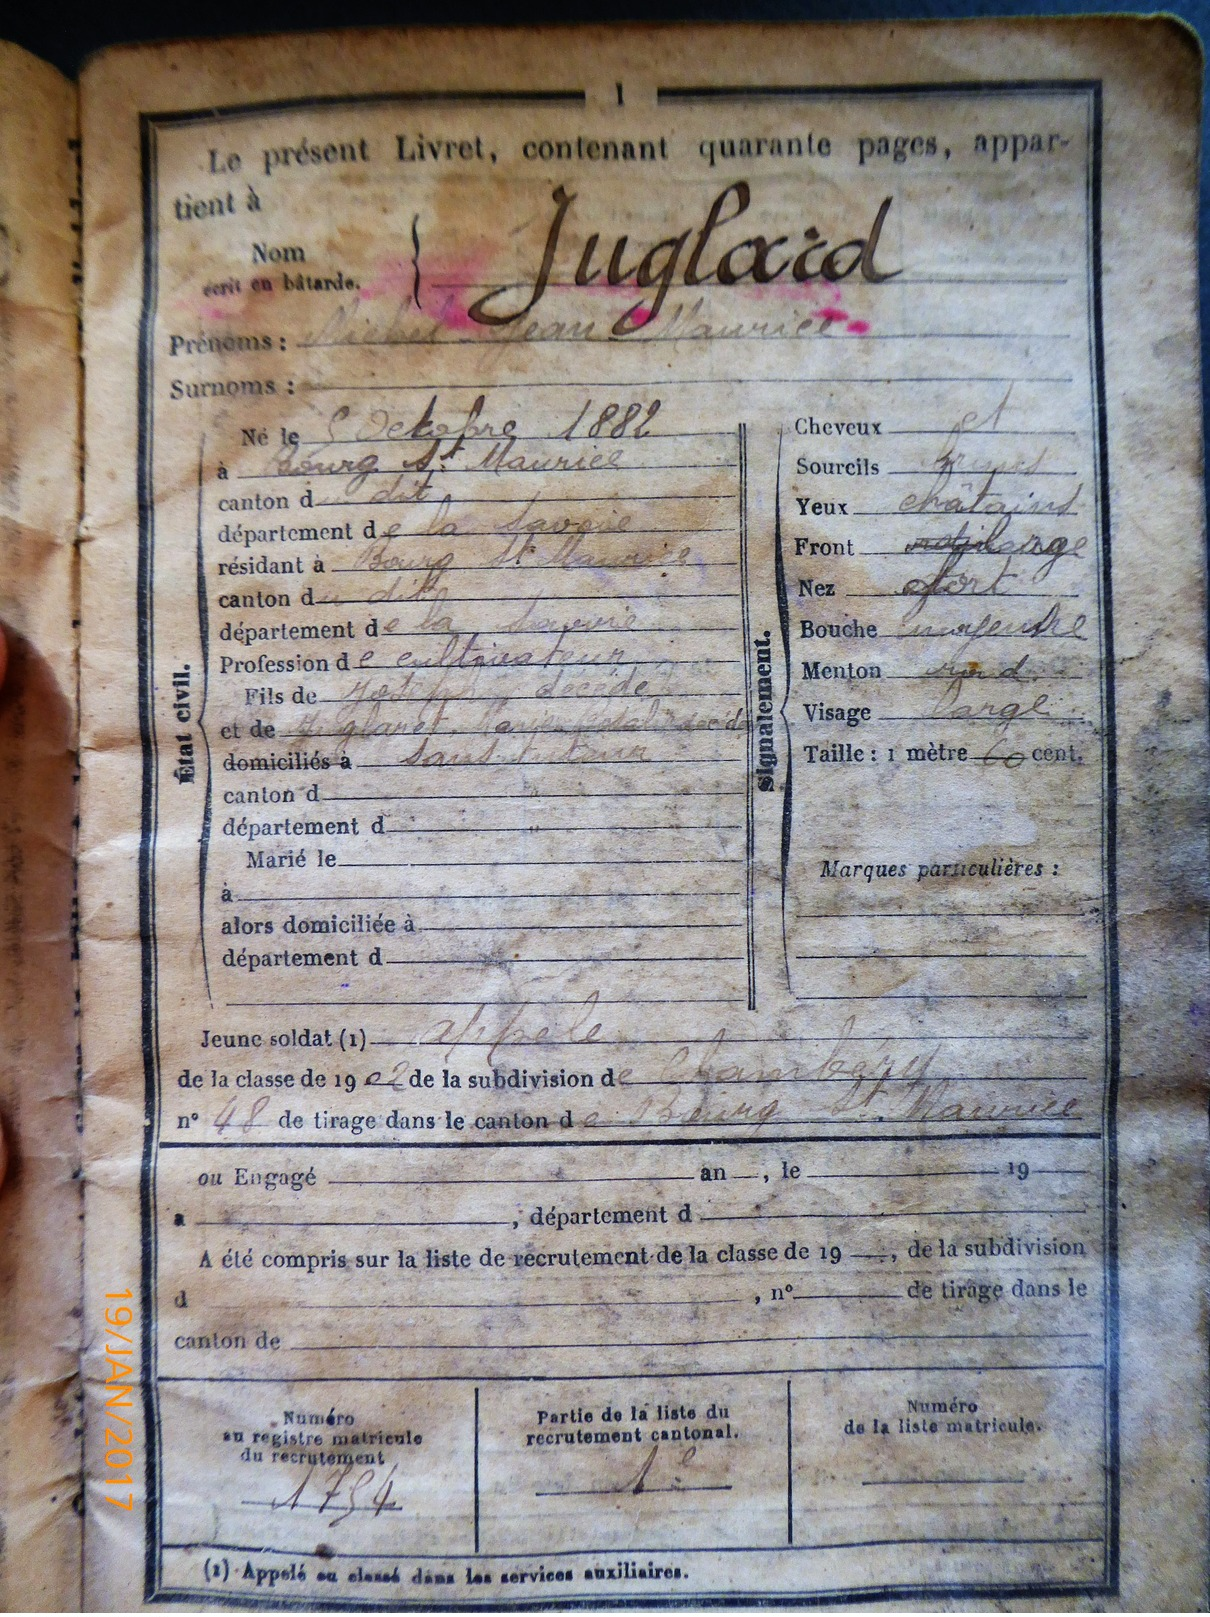 1
Le présent Livret, contenant quarante pages, appar-
tient à
Nom
écrit en bâtarde.
Juglard
Prénoms : Michel Jean Maurice
Surnoms :
État civil.
Né le 5 Octobre 1882
à Bourg St Maurice
canton du dit
département de la Savoie
résidant à Bourg St Maurice
canton du dit
département de la Savoie
Profession de cultivateur
Fils de Joseph décédé
et de Marie
domiciliés à sans tuteur
canton d
département d "
Marié le
à
alors domiciliée à
département d
Signalement.
Cheveux et
Sourcils bruns
Yeux châtains
Front large
Nez fort
Bouche moyenne
Menton rond
Visage large
Taille : 1 mètre 60 cent.
Marques particulières :
Jeune soldat (1) appelé
de la classe de 1902 de la subdivision de Chambéry
n° 48 de tirage dans le canton de Bourg St. Maurice
ou Engagé an , le 19
a , département d
A été compris sur la liste de recrutement de la classe de 19 , de la subdivision
d , n° de tirage dans le
canton de
Numéro
au registre matricule
du recrutement
1754
Partie de la liste du
recrutement cantonal.
1e
Numéro
de la liste matricule.
(1) Appelé ou classé dans les services auxiliaires.
19/JAN/2017